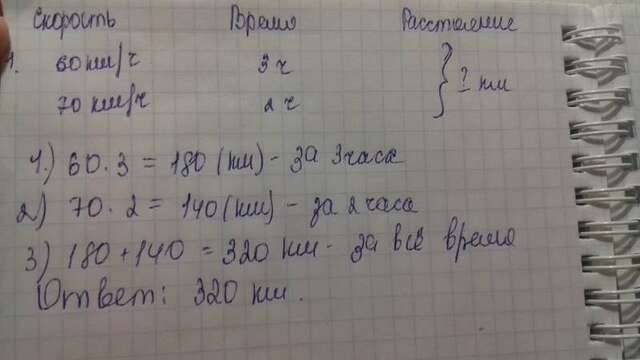 Скорость Время Расстояние
1. 60 км/ч 3 ч
70 км/ч 2 ч } ? км
1) 60 · 3 = 180 (км) - за 3 часа
2) 70 · 2 = 140 (км) - за 2 часа
3) 180 + 140 = 320 км - за всё время
Ответ: 320 км.